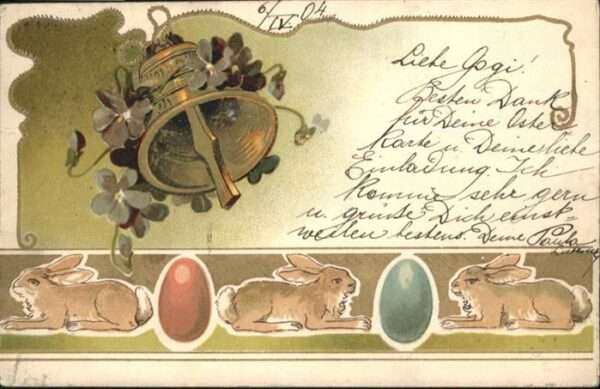 6/IV. 04
Liebe Gogi!
Besten Dank
für Deine Oster
karte u Deine liebe
Einladung. Ich
komme sehr gern
u. grüße Dich einst=
weilen bestens. Deine Paula